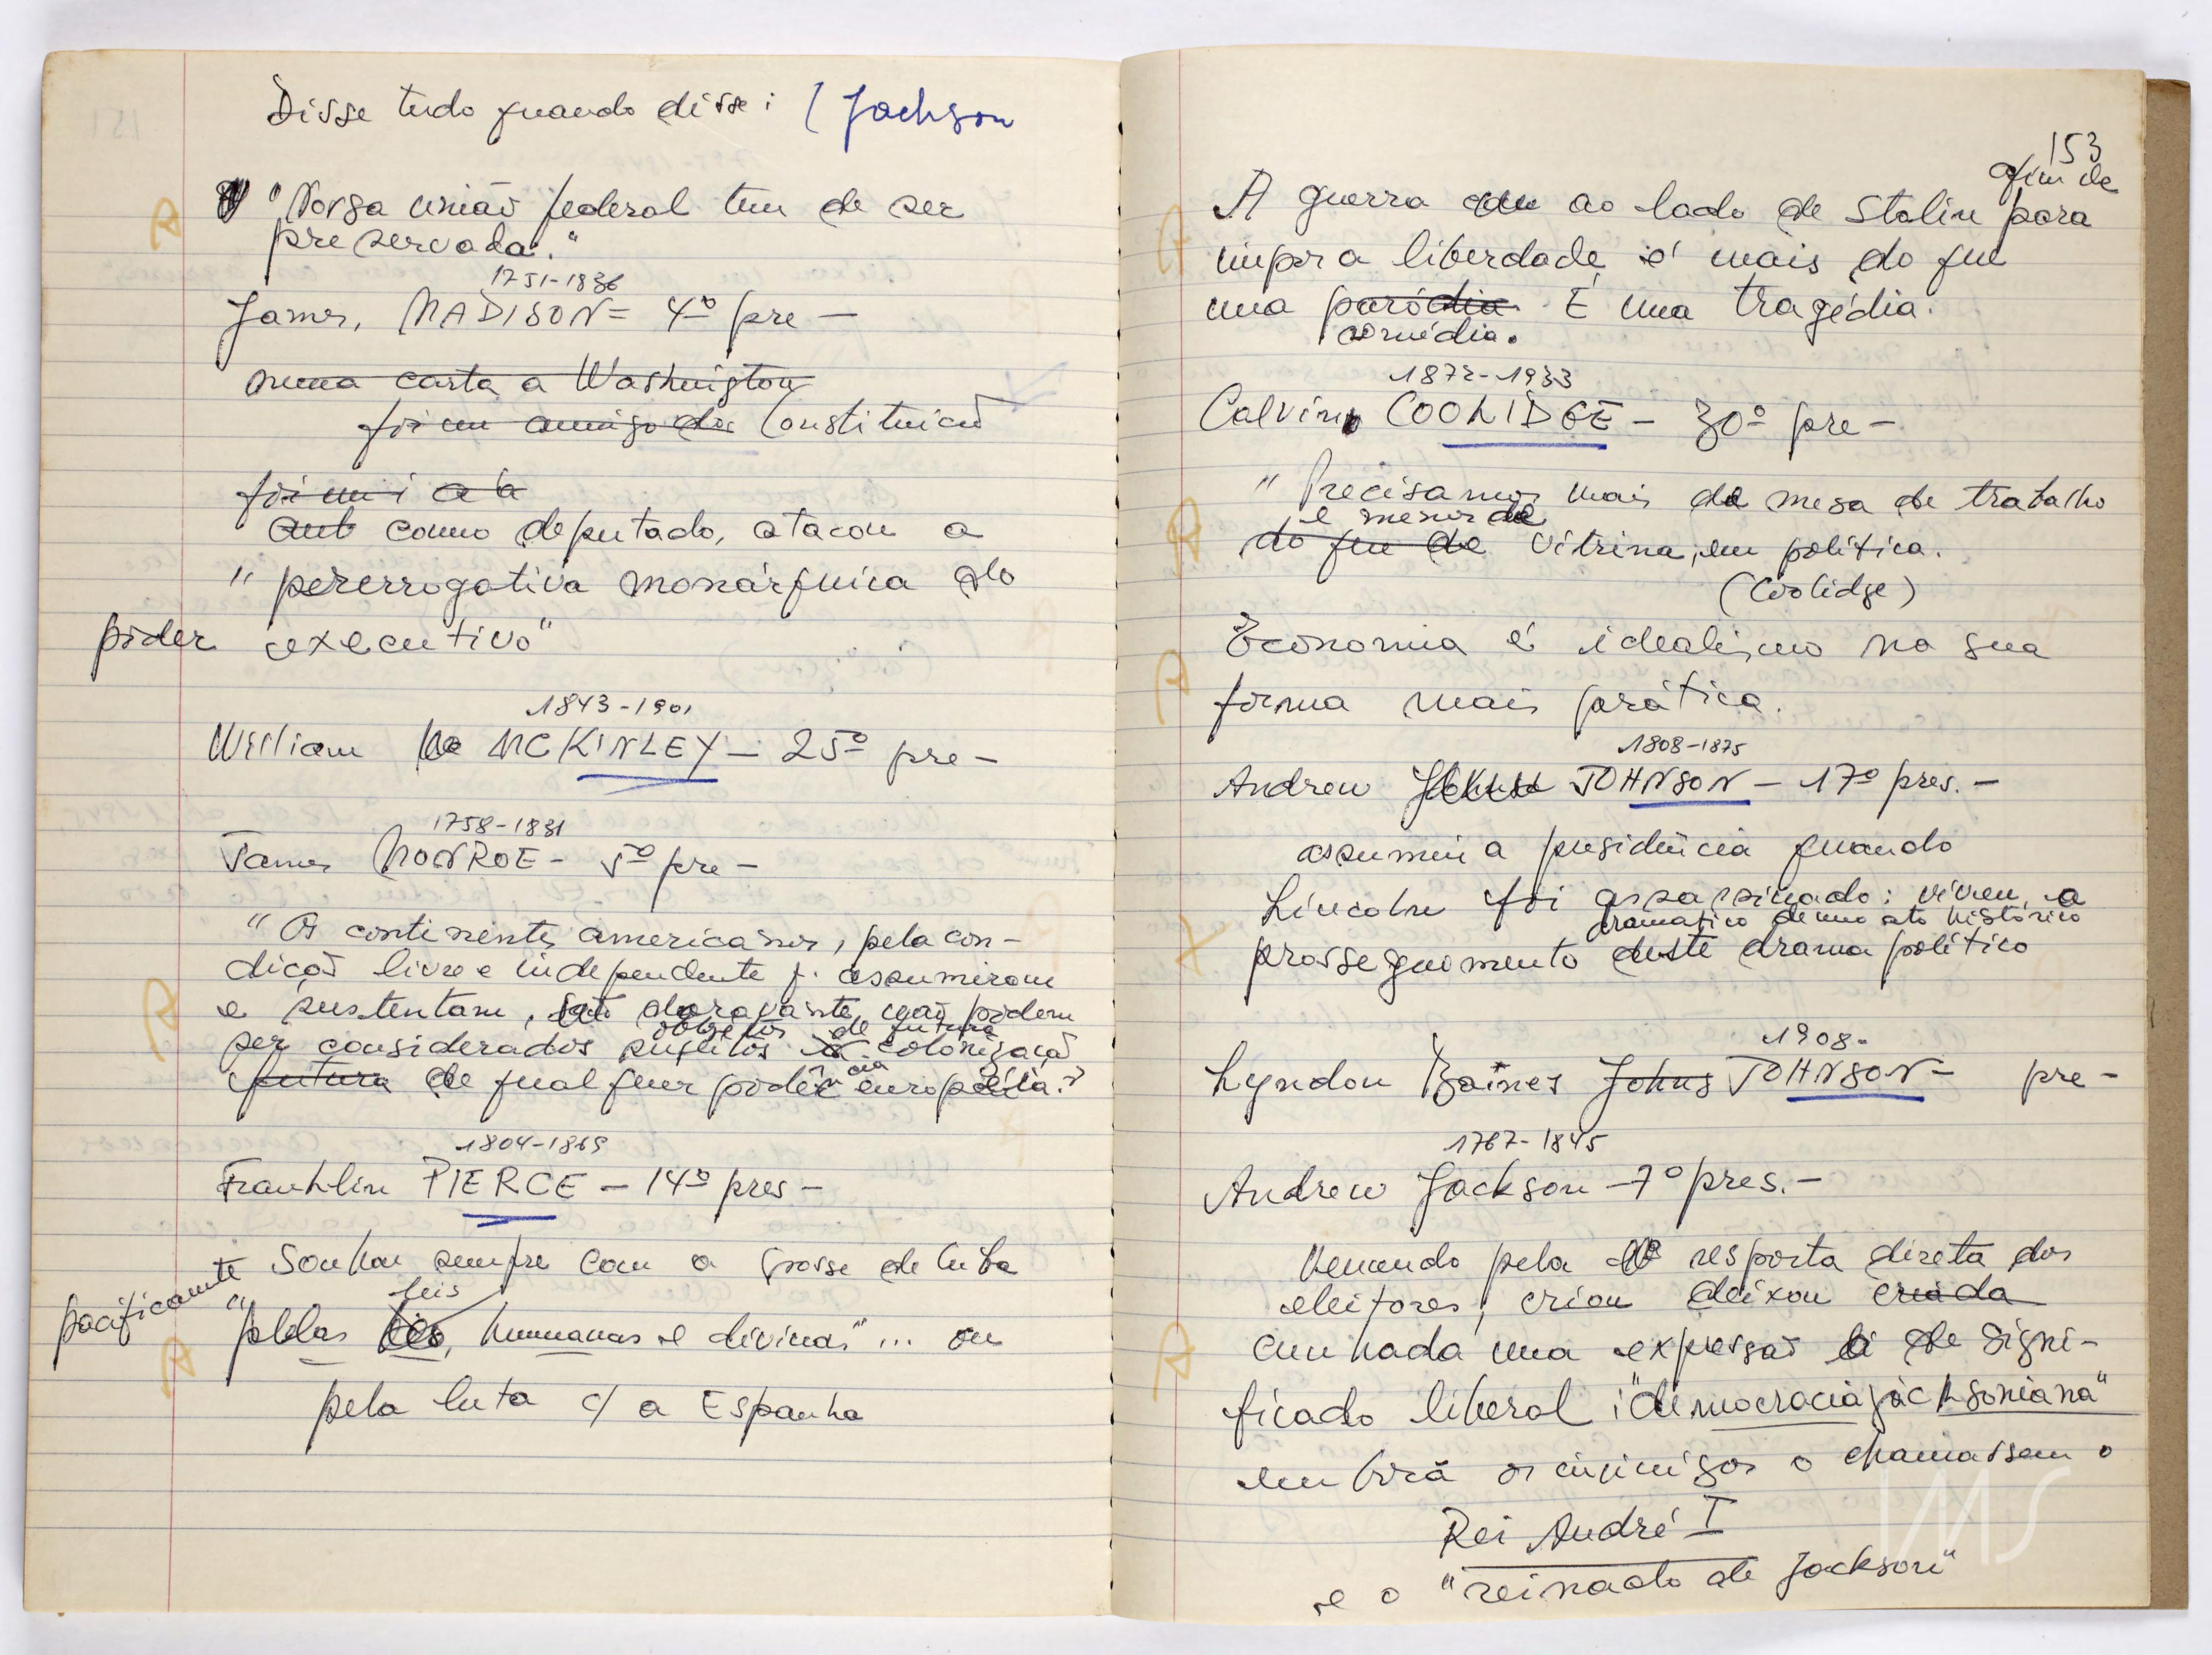 Disse tudo quando disse: (Jackson
"Nossa união federal tem de ser
preservada."
1751-1836
James, MADISON = 4º pre —
numa carta a Washington
foi um amigo da Constituição
foi um i a b
aut como deputado, atacou a
"pererrogativa monárquica do
poder executivo"
1843-1901
William Mc MCKINLEY — 25º pre —
1758-1831
James MONROE — 5º pre —
"Os continentes americanos, pela con-
dição livre e independente q. assumiram
e sustentam, doravante não podem
objetos de futura
ser considerados sujeitos colonização
futura de qualquer potência européia."
1804-1869
Franklin PIERCE — 14º pres —
Sonhou sempre com a posse de Cuba
pacificamente
leis
"pelas leis, humanas e divinas" ... ou
pela luta c/ a Espanha
153
afim de
A guerra ao lado de Stalin para
impor a liberdade é mais do que
uma paródia. É uma tragédia.
comédia.
1872-1933
Calvin COOLIDGE — 30º pre —
"Precisamos mais de mesa de trabalho
e menos de
do que de vitrina, em política.
(Coolidge)
Economia é idealismo na sua
forma mais prática.
1808-1875
Andrew JOHNSON — 17º pres. —
assumiu a presidência quando
Lincoln foi assassinado: viveu, o
dramático de um ato histórico
prosseguomento deste drama político
1908-
Lyndon Baines Johns JOHNSON — pre —
1767-1845
Andrew Jackson — 7º pres. —
pela resposta direta dos
eleitores, criou deixou criada
cunhada uma expressão de signi-
ficado liberal: "democracia jacksoniana"
embora os inimigos o chamassem o
Rei André I
e o "reinado de Jackson"
IMS